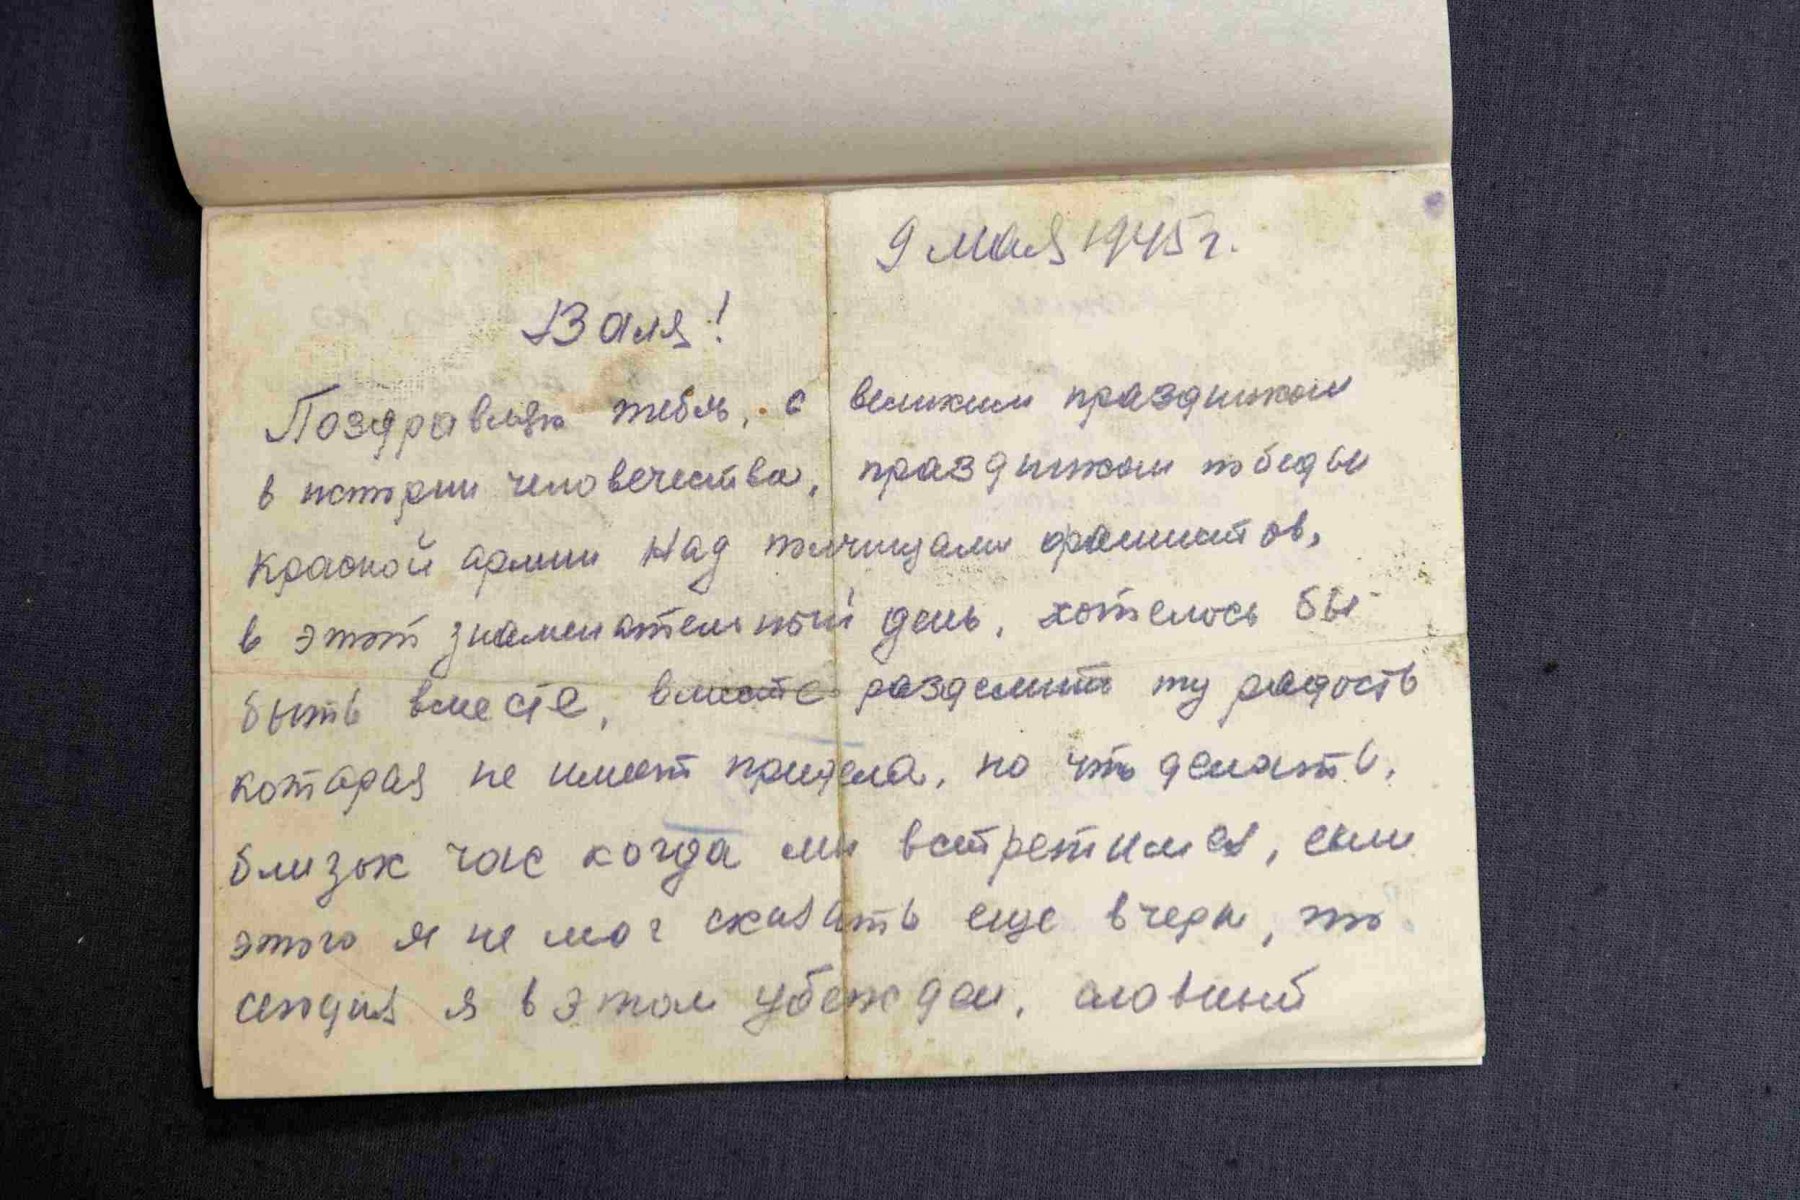 9 мая 1945 г.
Валя!
Поздравляю тебя, с великим праздником
в истории человечества, праздником победы
Красной армии над полчищами фашистов,
в этот знаменательный день, хотелось бы
быть вместе, вместе разделить ту радость
которая не имеет придела, но что делать,
близок час когда мы встретимся, если
этого я не мог сказать еще вчера, то
сегодня я в этом убежден,